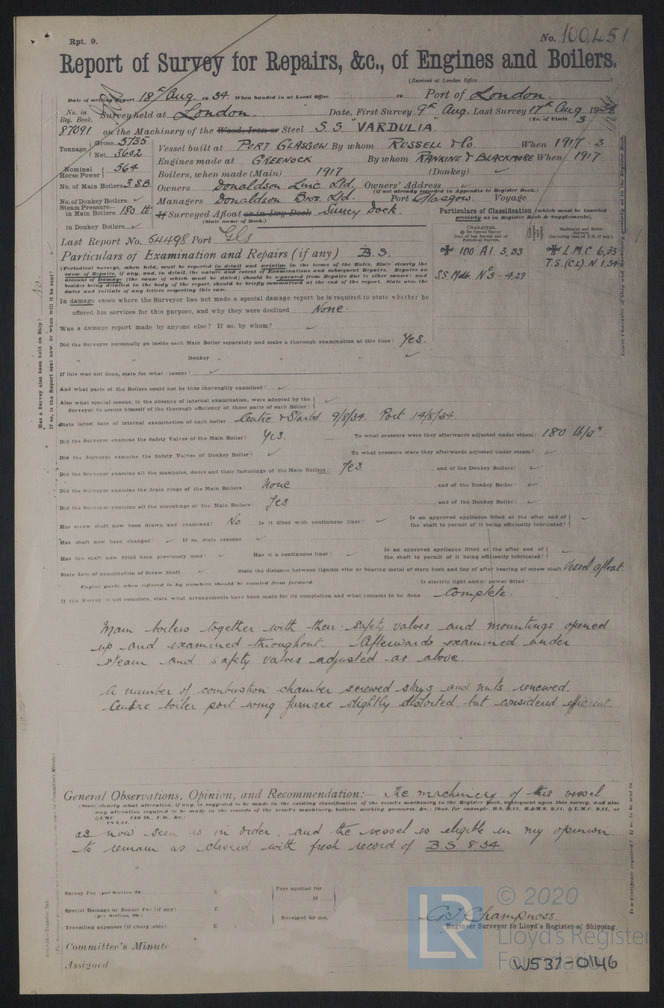 Rpt. 9.
No. 100451
Report of Survey for Repairs, &c., of Engines and Boilers.
(Received at London Office
Date of writing Report 18th Aug 1934 When handed in at Local Office Port of London.
No. in Reg. Book. Survey held at London Date, First Survey 9th Aug. Last Survey 17th Aug 1934
(No. of Visits 3
87091 on the Machinery of the Wood, Iron or Steel S S "VARDULIA"
Tonnage Gross 5735
Net 3602
Vessel built at PORT GLASGOW By whom RUSSELL & Co. When 1917 . 3
Engines made at GREENOCK By whom RANKINE & BLACKMORE When 1917
Nominal Horse Power 564
Boilers, when made (Main) 1917 (Donkey)
No. of Main Boilers 3 S.B. Owners Donaldson Line Ltd. Owners' Address
(if not already recorded in Appendix to Register Book.)
No. of Donkey Boilers Managers Donaldson Bros. Ltd. Port Glasgow. Voyage
Steam Pressure in Main Boilers 180 lb If Surveyed Afloat or in Dry Dock Surrey Dock.
(State name of Dock.)
in Donkey Boilers
Particulars of Classification (which must be carried precisely as in Register Book & Supplements).
Last Report No. 54498 Port Gls
Particulars of Examination and Repairs (if any) B.S.
100 A1 3,33
L.M.C 6,33
T.S.(CL) N. 1.34
S.S. No. 3 - 4.29
In damage cases where the Surveyor has not made a special damage report he is required to state whether he
offered his services for this purpose, and why they were declined None
Was a damage report made by anyone else? If so, by whom?
Did the Surveyor personally go inside each Main Boiler separately and make a thorough examination at this time? Yes.
" " Donkey " " "
If this was not done, state for what reasons?
And what parts of the Boilers could not be thus thoroughly examined?
Also what special means, in the absence of internal examination, were adopted by the
Surveyor to assure himself of the thorough efficiency of those parts of each Boiler?
State latest date of internal examination of each boiler Centre & Starbd 9/8/34 Port 14/8/34
Did the Surveyor examine the Safety Valves of the Main Boiler? Yes. To what pressure were they afterwards adjusted under steam? 180 lb/□"
Did the Surveyor examine the Safety Valves of Donkey Boiler? To what pressure were they afterwards adjusted under steam?
Did the Surveyor examine all the manholes, doors and their fastenings of the Main Boilers? Yes and of the Donkey Boilers?
Did the Surveyor examine the drain plugs of the Main Boilers? None and of the Donkey Boiler?
Did the Surveyor examine all the mountings of the Main Boilers? Yes and of the Donkey Boiler?
Has screw shaft now been drawn and examined? No Is it fitted with continuous liner? Is an approved appliance fitted at the after end of the shaft to permit of it being efficiently lubricated?
Has shaft now been changed? If so, state reasons
Has the shaft now fitted been previously used? Has it a continuous liner? Is an approved appliance fitted at the after end of the shaft to permit of it being efficiently lubricated?
State date of examination of Screw Shaft State the distance between lignum vitæ or bearing metal of stern bush and top of after bearing of screw shaft Vessel afloat
Engine parts, when referred to by numbers should be counted from forward. Is electric light and/or power fitted?
If the Survey is not complete, state what arrangements have been made for its completion and what remains to be done Complete.
Main boilers together with their safety valves and mountings opened
up and examined throughout. Afterwards examined under
steam and safety valves adjusted as above.
A number of combustion chamber screwed stays and nuts renewed.
Centre boiler port wing furnace slightly distorted but considered efficient.
General Observations, Opinion, and Recommendation:— The machinery of this vessel
as now seen is in order, and the vessel is eligible in my opinion
to remain as classed with fresh record of B S 8.34
Survey Fee (per Section 29) £
Special Damage or Repair Fee (if any) (per Section 29) £
Travelling expenses (if chargeable) £
Fees applied for
19
Received by me,
Engineer Surveyor to Lloyd's Register of Shipping.
Committee's Minute
Assigned
LR
© 2020
Lloyd's Register
Foundation
W537-0146